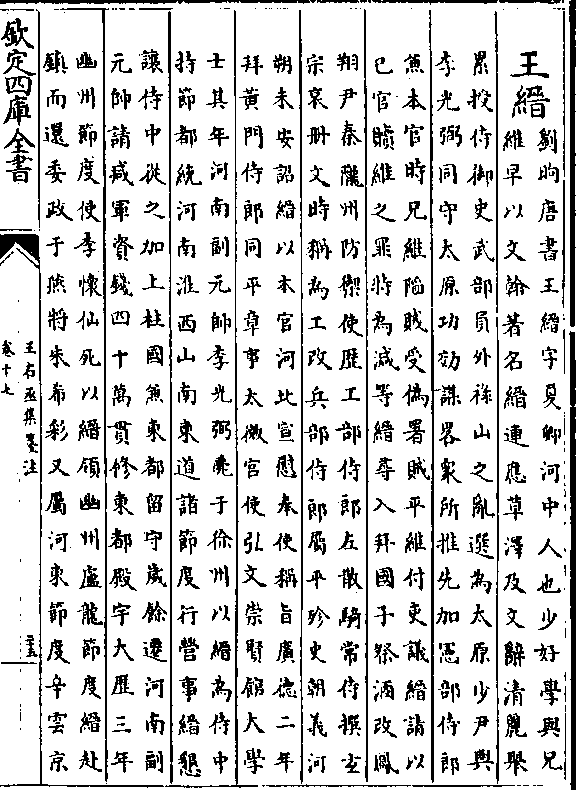 王縉
劉昫唐書王縉字夏卿河中人也少好學與兄
維早以文翰著名縉連應草澤及文辭清麗舉
累授侍御史武部員外祿山之亂選為太原少尹與
李光弼同守太原功効謀畧衆所推先加憲部侍郎
兼本官時兄維陷賊受偽署賊平維付吏議縉請以
已官贖維之罪特為減等縉尋入拜國子祭酒改鳳
翔尹秦隴州防禦使歷工部侍郎左散騎常侍撰玄
宗哀册文時稱為工改兵部侍郎屬平殄史朝義河
朔未安詔縉以本官河北宣慰奉使稱旨廣徳二年
拜黄門侍郎同平章事太微宮使弘文崇賢館大學
士其年河南副元帥李光弼薨于徐州以縉為侍中
持節都統河南淮西山南東道諸節度行營事縉懇
讓侍中從之加上柱國兼東都留守歲餘遷河南副
元帥請減軍資錢四十萬貫修東都殿宇大歷三年
幽州節度使李懷仙死以縉領幽州盧龍節度縉赴
鎮而還委政于燕將朱希彩又屬河東節度辛雲京
欽定四庫全書
王右丞集箋注
卷十七